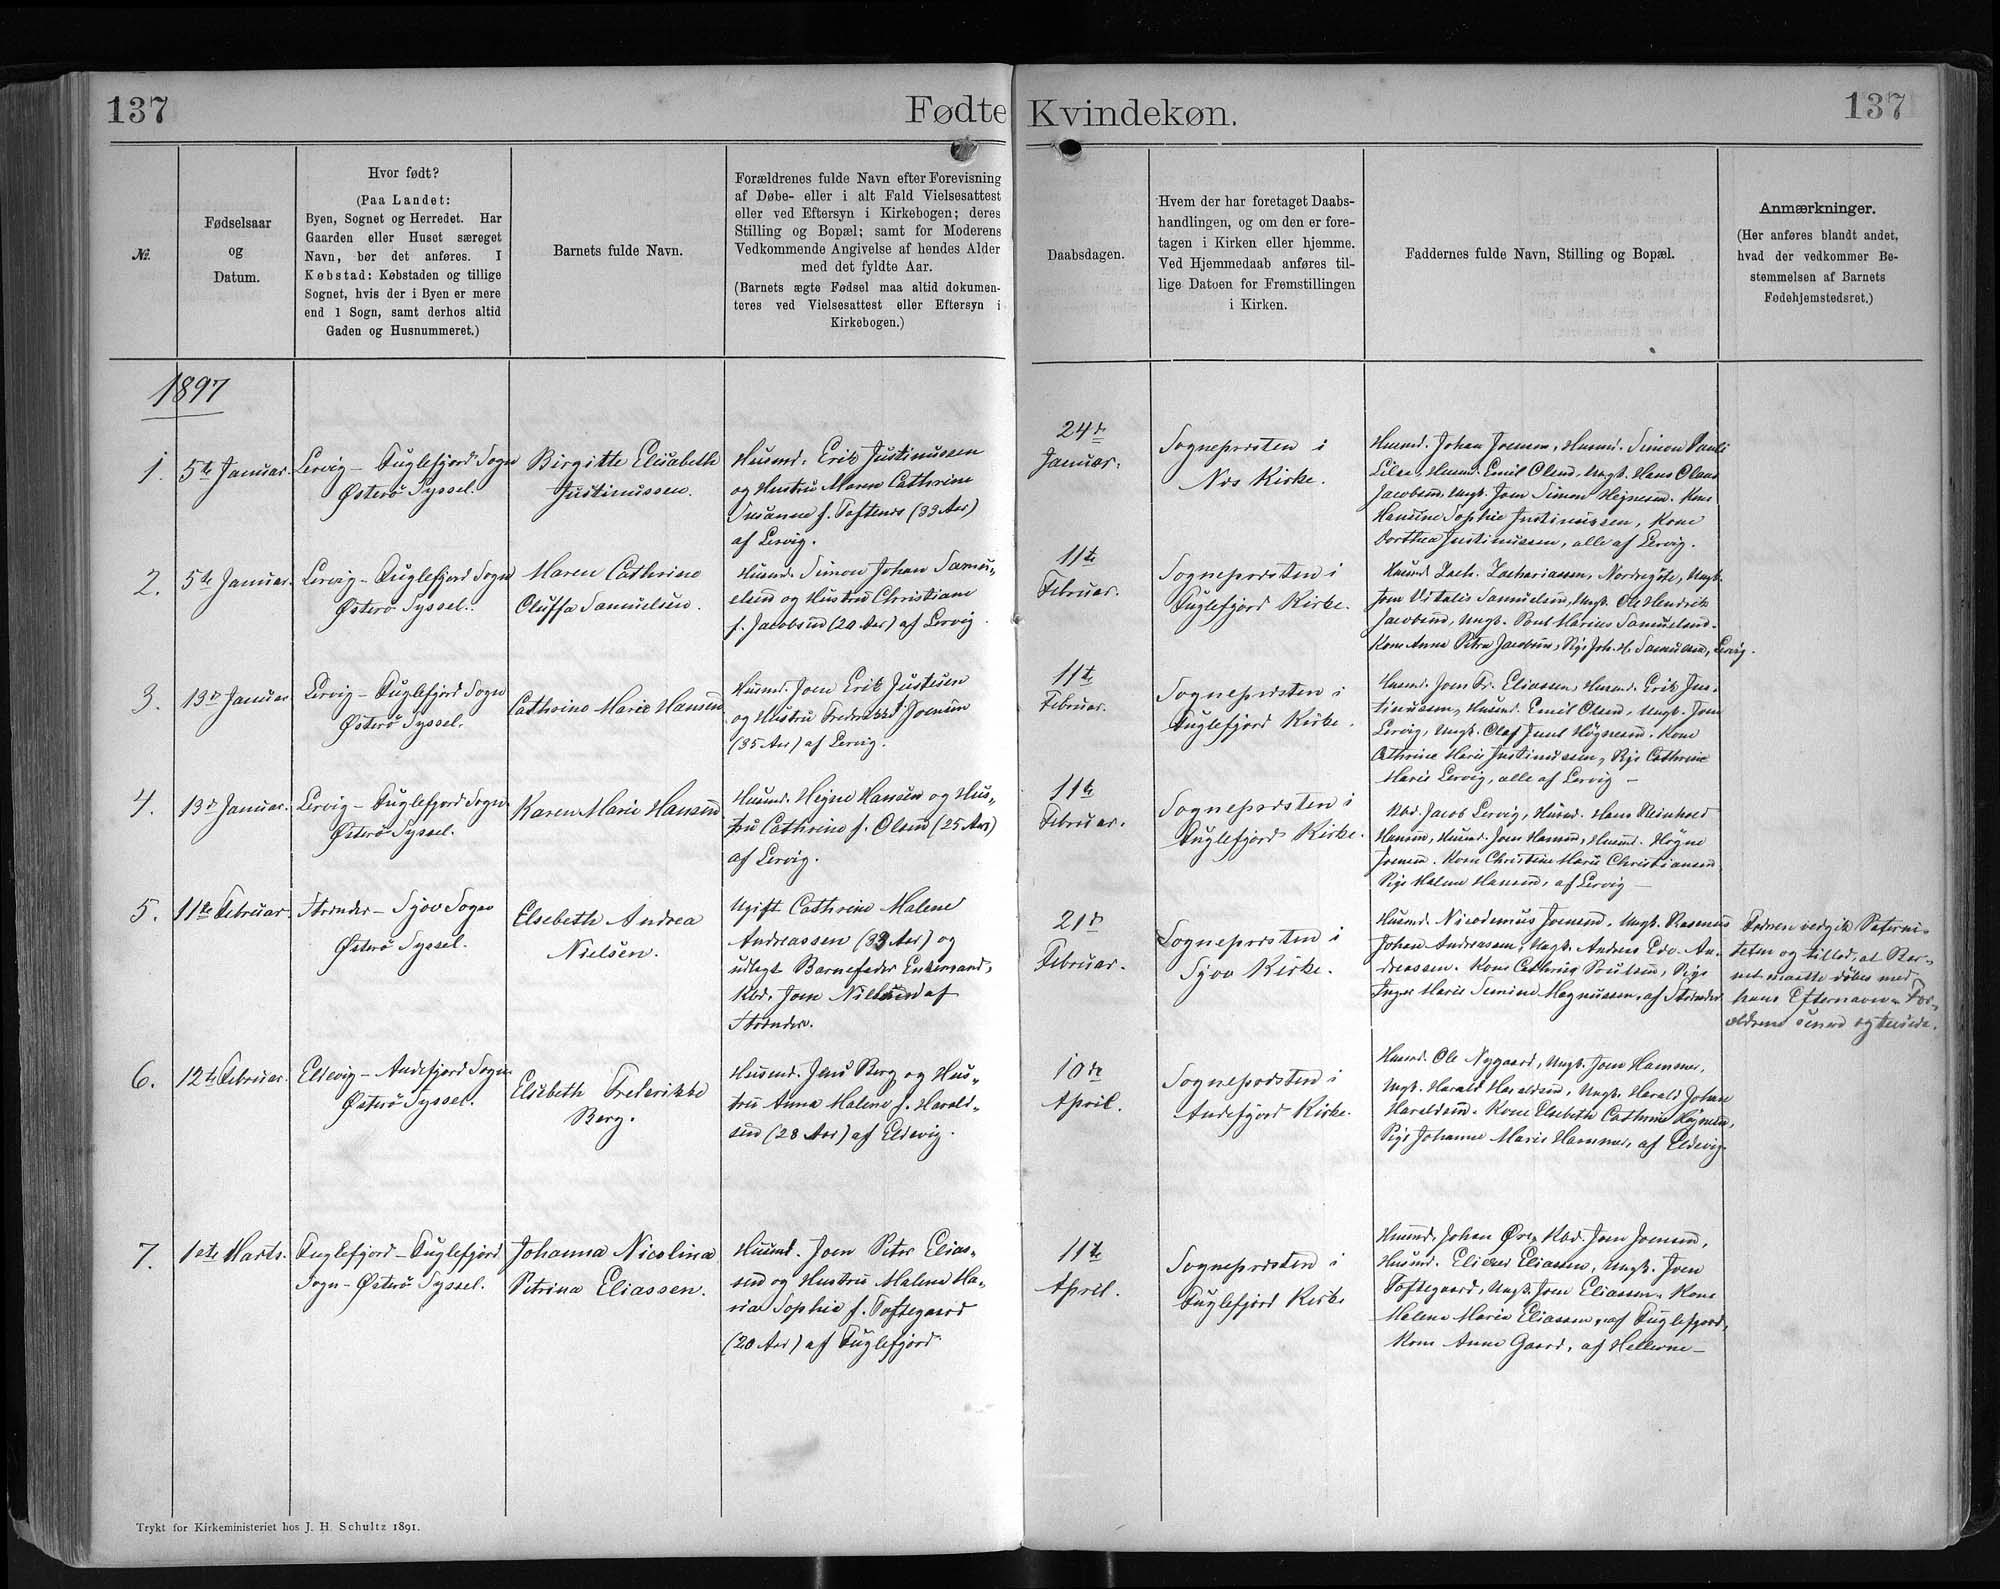 137
Fødte
Kvindekøn.
137
№.
Fødselsaar
og
Datum.
Hvor født?
(Paa Landet:
Byen, Sognet og Herredet. Har
Gaarden eller Huset særeget
Navn, bør det anføres. I
Købstad: Købstaden og tillige
Sognet, hvis der i Byen er mere
end 1 Sogn, samt derhos altid
Gaden og Husnummeret.)
Barnets fulde Navn.
Forældrenes fulde Navn efter Forevisning
af Døbe- eller i alt Fald Vielsesattest
eller ved Eftersyn i Kirkebogen; deres
Stilling og Bopæl; samt for Moderens
Vedkommende Angivelse af hendes Alder
med det fyldte Aar.
(Barnets ægte Fødsel maa altid dokumen-
teres ved Vielsesattest eller Eftersyn i
Kirkebogen.)
Daabsdagen.
Hvem der har foretaget Daabs-
handlingen, og om den er fore-
tagen i Kirken eller hjemme.
Ved Hjemmedaab anføres til-
lige Datoen for Fremstillingen
i Kirken.
Faddernes fulde Navn, Stilling og Bopæl.
Anmærkninger.
(Her anføres blandt andet,
hvad der vedkommer Be-
stemmelsen af Barnets
Fødehjemstedsret.)
1897
1.
5te Januar.
Lervig – Fuglefjord Sogn
Østerø Syssel.
Birgitte Elisabeth
Justinussen.
Husmd. Erik Justinussen
og Hustru Maren Cathrine
Susanne f. Toftenes (33 Aar)
af Lervig.
24de
Januar.
Sognepræsten i
Næs Kirke.
Husmd. Johan Joensen, Husmd. Simon Pauli
Husmd. Emil Olsen, Ungk. Hans Olaus
Jacobsen, Ungk. Joen Simon Hejnesen. Kone
Hansine Sophie Justinussen, Kone
Dorthea Justinussen, alle af Lervig.
2.
5te Januar.
Lervig – Fuglefjord Sogn
Østerø Syssel.
Maren Cathrine
Oluffa Samuelsen.
Husmd. Simon Johan Samu-
elsen og Hustru Christiane
f. Jacobsen (20 Aar) af Lervig.
11te
Februar.
Sognepræsten i
Fuglefjord Kirke.
Husmd. Zach. Zachariassen, Nordregøte, Ungk.
Joen Vitalis Samuelsen, Ungk. Ole Hendrik
Jacobsen, Ungk. Poul Marius Samuelsen.
Kone Anne Petra Jacobsen, Pige Joh. M. Samuelsen, Lervig.
3.
13de Januar
Lervig – Fuglefjord Sogn
Østerø Syssel.
Cathrine Marie Hansen
Husmd. Joen Erik Justesen
og Hustru Frederikke f. Joensen
(35 Aar) af Lervig.
11te
Februar.
Sognepræsten i
Fuglefjord Kirke.
Husmd. Joen Fr. Eliassen, Husmd. Erik Jus-
tinussen, Husmd. Emil Olsen, Ungk. Joen
Lervig, Ungk. Olaf Juul Högnesen. Kone
Cathrine Marie Justinussen, Pige Cathrine
Marie Lervig, alle af Lervig –
4.
13de Januar.
Lervig – Fuglefjord Sogn.
Østerø Syssel.
Karen Marie Hansen
Husmd. Hejne Hansen og Hus-
tru Cathrine f. Olsen (25 Aar)
af Lervig.
11te
Februar.
Sognepræsten i
Fuglefjord Kirke.
Kbd. Jacob Lervig, Husmd. Hans Reinhold
Hansen, Husmd. Joen Hansen, Husmd. Högne
Joensen. Kone Christine Marie Christiansen
Pige Malene Hansen, af Lervig –
5.
11te Februar.
Strender – Sjov Sogn
Østerø Syssel.
Elsebeth Andrea
Nielsen.
Ugift Cathrine Malene
Andreassen (33 Aar) og
udlagt Barnefader Enkemand,
Kbd. Joen Nielsen af
Strender.
21de
Februar.
Sognepræsten i
Sjov Kirke.
Husmd. Nicodemus Joensen, Ungk. Rasmus
Johan Andreassen, Ungk. Andreas Edv. An-
dreassen. Kone Cathrine Poulsen, Pige
Inger Marie Simine Magnussen, af Strender
Faderen vedgik Paterni-
teten og tillod, at Bar-
net maatte døbes med
hans Efternavn. For-
ældrene senere
6.
12te Februar.
Eldevig – Andefjord Sogn
Østerø Syssel.
Elsebeth Frederikke
Berg.
Husmd. Jens Berg og Hus-
tru Anna Malene f. Harald-
sen (28 Aar) af Eldevig.
10de
April.
Sognepræsten i
Andefjord Kirke.
Husmd. Ole Nygaard, Ungk. Joen Hammer,
Ungk. Harald Haraldsen, Ungk. Harald Johan
Haraldsen. Kone Elsebeth Cathrine Högnesen,
Pige Johanne Marie Hammer, af Eldevig.
7.
1ste Marts.
Fuglefjord – Fuglefjord
Sogn – Østerø Syssel.
Johanna Nicolina
Petrina Eliassen.
Husmd. Joen Peter Elias-
sen og Hustru Malene Ma-
ria Sophie f. Toftegaard
(20 Aar) af Fuglefjord
11te
April.
Sognepræsten i
Fuglefjord Kirke
Husmd. Johan Øre, Kbd. Joen Joensen,
Husmd. Elieser Eliassen, Ungk. Joen
Toftegaard, Ungk. Joen Eliassen. Kone
Malene Marie Eliassen, af Fuglefjord,
Kone Anne Gaard, af Hellerne –
Trykt for Kirkeministeriet hos J. H. Schultz 1891.